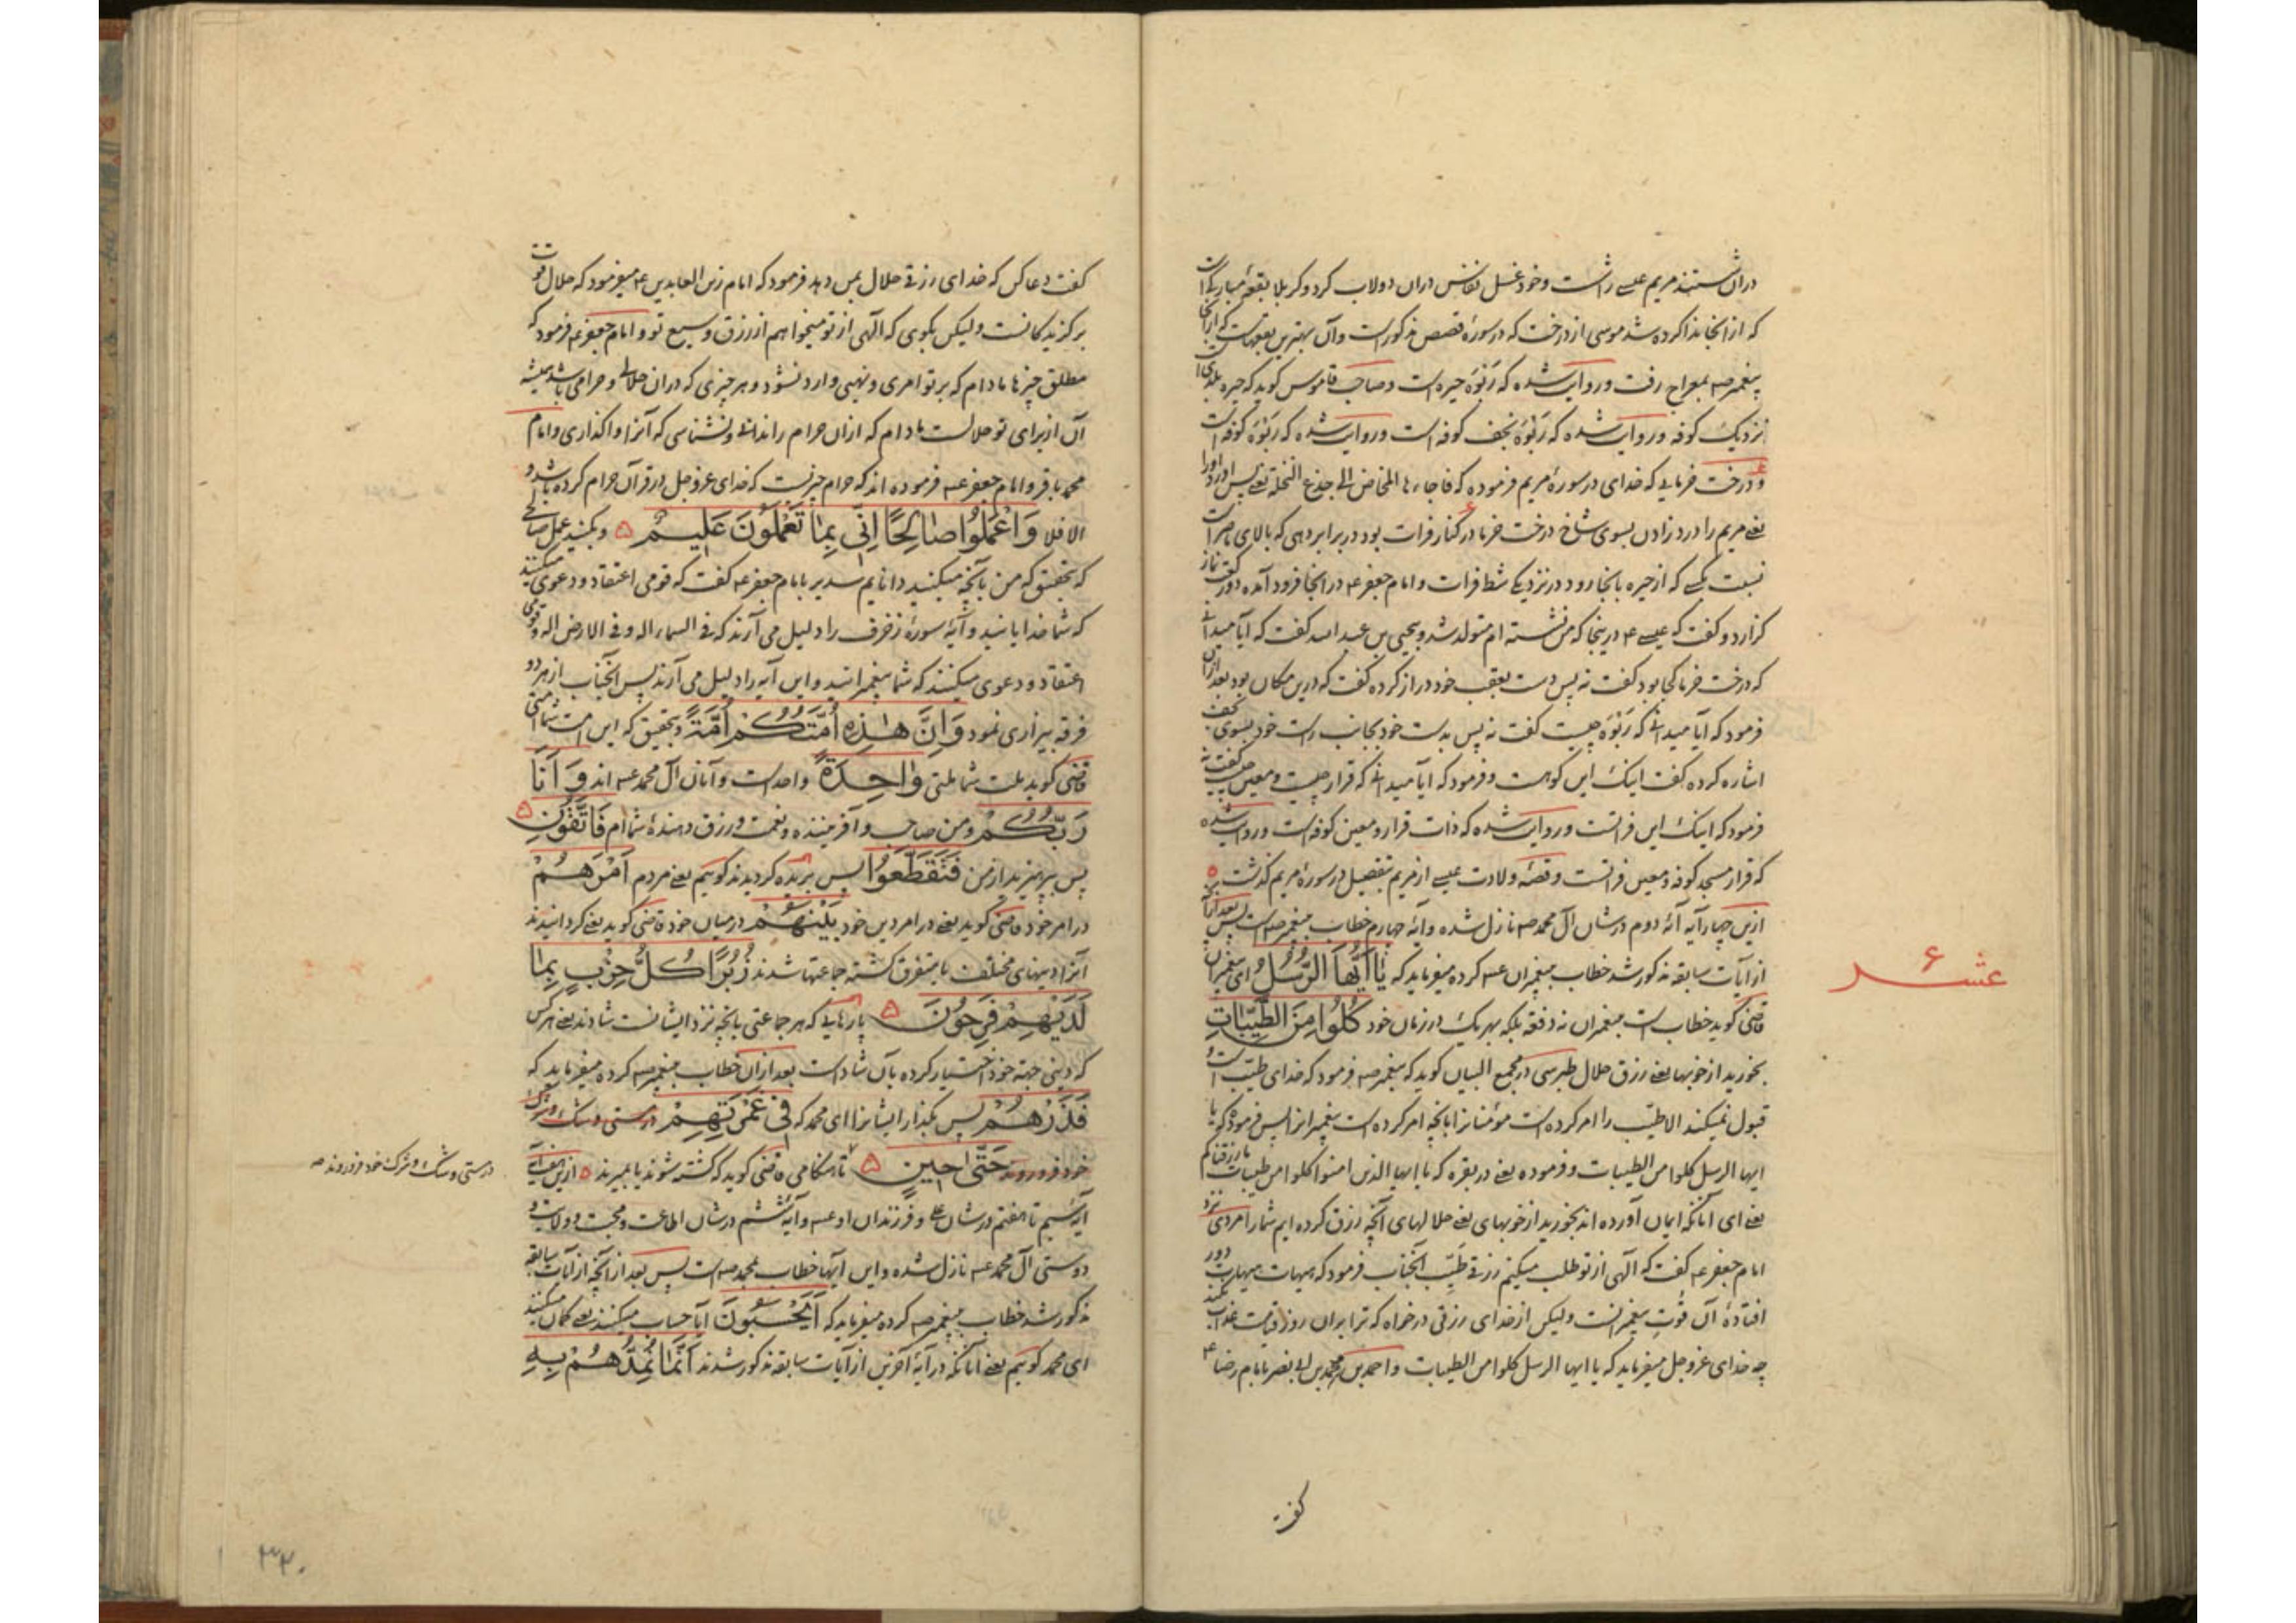 دران شستند مریم عیسے را شست و خود غسل نفاس دران دولاب کرد و کربلا بقعۀ مبارکه است
که از انجا ندا کرده شد موسی از درخت که در سورۀ قصص مذکورست و آن بهترین بقعهاست که ازانجا
پیغمبر صه بمعراج رفت و روایت شده که رَبْوَه حیره است و صاحب قاموس کوید که حیره بلدی
نزدیک کوفه و روایت شده که رَبْوَه نجف کوفه است و روایت شده که رَبْوَه کوفه است
و درخت خرمایے که خدای در سورۀ مریم فرموده که فاجاءها المخاض الے جذع النخلة یعنے پس اورد اورا
یعنے مریم را درد زادن بسوی شاخ درخت خرما در کنار فرات بود در برابر دهی که بالای است
نسبت بکسے که از حیره بانجا رود در نزدیکے شط فرات و امام جعفر عه در انجا فرود آمده دو رکعت نماز
کزارد و کفت که عیسے عه در ینجا که من نشسته ام متولد شد و یحیی بن عبد الله کفت که آیا میدانے
که درخت خرما کجا بود کفت نه پس دست بعقب خود دراز کرده کفت که درین مکان بود بعد ازان
فرمود که آیا میدانے که رَبْوَه چیست کفت نه پس بدست خود بجانب راست خود بسوی نجف
اشاره کرده کفت اینک این کوهست و فرمود که آیا میدانے که قرار چیست و معین چیست کفت نه
فرمود که اینک این فراتست و روایت شده که ذات قرار و معین کوفه است و روایت شده
که قرار مسجد کوفه و معین فراتست و قصّۀ ولادت عیسے از مریم بتفصیل در سورۀ مریم کذشت ۵
ازین چهار آیه آیۀ دوم در شان آل محمد صه نازل شده و آیۀ چهارم خطاب پیغمبر صه است پس بعد ازانکه
از آیات سابقه مذکور شد خطاب پیغمبران عه کرده میفرماید که یٰا اَیُّهَا الرُّسُلُ ای پیغمبران
قاضی کوید خطاب است پیغمبران نه دفعة بلکه بهر یک در زمان خود کُلُوا مِنَ الطَّیِّبٰاتِ
بخورید از خوبیها یعنے رزق حلال طبرسی در مجمع البیان کوید که پیغمبر صه فرمود که خدای طیّب است و
قبول نمیکند الا طیّب را امر کرده است مؤمنانرا بانچه امر کرده است پیغمبرانرا پس فرموده که یا
ایها الرسل کلوا من الطیبات و فرموده یعنے در بقره که یا ایها الذین امنوا کلوا من طیبات ما رزقناکم
یعنے ای آنانکه ایمان آورده اند بخورید از خوبهای یعنے حلالهای آنچه رزق کرده ایم شمارا مردی نزد
امام جعفر عه کفت که آلهی از تو طلب میکنم رزقے طَیِّب انجناب فرمود که هیهات هیهات دور
افتادۀ آن قُوتِ پیغمبرانست ولیکن از خدای رزقی درخواه که ترا بران روز قیامت عذاب نکند
چه خدای عزوجل میفرماید که یا ایها الرسل کلوا من الطیبات و احمد بن محمد بن ابی نصر بامام رضا عه
عشر
کفت
کفت دعا کن که خدای رزقے حلال بمن دهد فرمود که امام زین العابدین عه میفرمود که حلال قوت
برکزیدکانست ولیکن بکوی که آلهی از تو میخواهم از رزق وسیع تو و امام جعفر عه فرمود که
مطلق چیزها مادام که بر تو امری و نهیی وارد نشود و هر چیزی که دران حلالے و حرامی باشد همیشه
آن از برای تو حلالست مادام که ازان حرام را ندانے و نشناسی که آنرا واکذاری و امام
محمد باقر و امام جعفر عه فرموده اند که حرام چیزیست که خدای عزوجل در قرآن حرام کرده باشد و
الا فلا وَاعْمَلُوا صٰالِحًا اِنّی بِمٰا تَعْمَلُونَ عَلیمٌ ۵ و بکنید عمل صالح
که بتحقیق که من بآنچه میکنید دانایم سدیر بامام جعفر عه کفت که قومی اعتقاد و دعوی میکنند
که شما خدایانید و آیۀ سورۀ زخرف را دلیل می آرند که فی السماء اله و فی الارض اله و قومی
اعتقاد و دعوی میکنند که شما پیغمبرانید و این آیه را دلیل می آرند پس انجناب از هر دو
فرقه بیزاری نمود وَاِنَّ هٰذِهِ اُمَّتُکُمْ اُمَّةً و بتحقیق که این امت شما امتی
قاضی کوید ملت شما ملتی وٰاحِدَةً واحد است و آنان آل محمد عه اند وَ اَنَا
رَبُّکُمْ و من صاحب و آفریننده و نعمت و رزق دهندۀ شماام فَاتَّقُونِ ۵
پس بپرهیزید از من فَتَقَطَّعُوا پس بریده کردیدند کوئیم یعنے مردم اَمْرَهُمْ
در امر خود قاضی کوید یعنے در امر دین خود بَیْنَهُمْ در میان خود قاضی کوید یعنے کردانیدند
آنرا دینهای مختلف یا متفرق کشته جماعتها شدند زُبُرًا کُلُّ حِزْبٍ بِمٰا
لَدَیْهِمْ فَرِحُونَ ۵ پارهایے که هر جماعتی بانچه نزد ایشانست شادند یعنے هر کس
که دینی جهة خود اختیار کرده بآن شاد است بعد ازان خطاب پیغمبر صه کرده میفرماید که
فَذَرْهُمْ پس بکذار ایشانرا ای محمد که فی غَمْرَتِهِمْ در مستی و شک و شرک
خود فرو روند حَتّٰی حینٍ ۵ تا هنکامی قاضی کوید که کشته شوند یا بمیرند ۵ ازین
آیۀ سیم تا هفتم در شان علے و فرزندان او عه و آیۀ ششم در شان اطاعت و محبت و ولایت و
دوستی آل محمد عه نازل شده و این آیها خطاب بمحمد صه است پس بعد از آنچه از آیات سابقه
مذکور شد خطاب پیغمبر صه کرده میفرماید که اَیَحْسَبُونَ آیا حساب میکنند یعنے کمان میکنند
ای محمد کوئیم یعنے آنانکه در آیۀ آخرین از آیات سابقه مذکور شدند اَنَّمٰا نُمِدُّهُمْ بِهِ
در مستی و شک و شرک خود فرو روند صه
۳۲۰